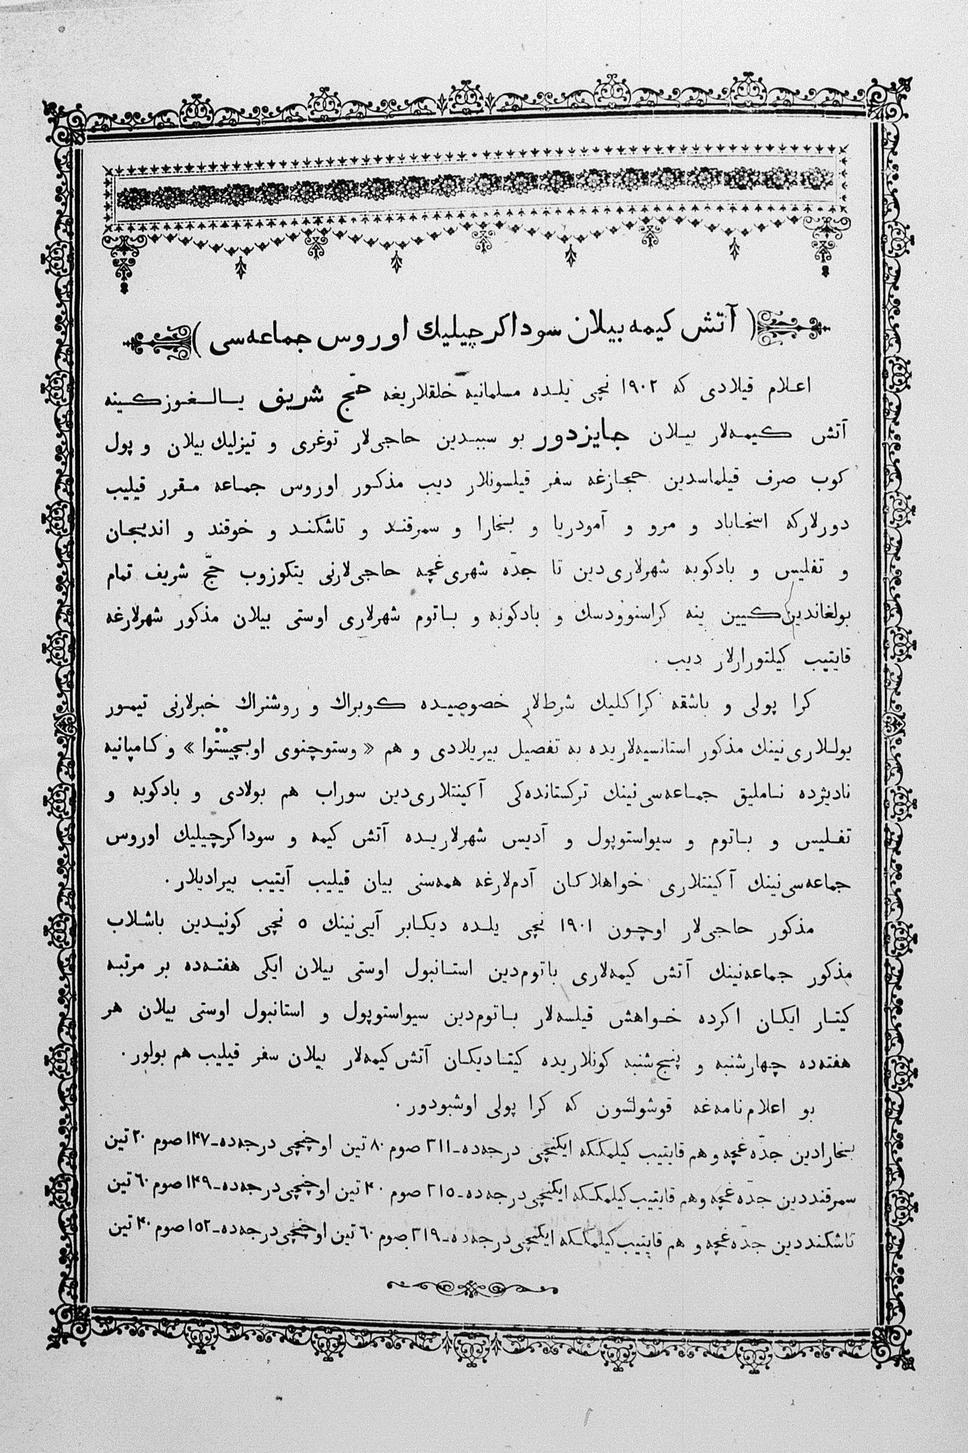 ( آتش کیمه بیلان سوداکرچیلیك اوروس جماعه‌سی )
اعلام قیلادی که ۱۹۰۲ نچی یلده مسلمانیه خلقلاریغه حج شریف یالغوزکینه
آتش کیمه‌لار بیلان جایزدور بو سببدین حاجی‌لار توغری و تیزلیك بیلان و پول
کوب صرف قیلماسدین حجازغه سفر قیلسونلار دیب مذکور اوروس جماعه مقرر قیلیب
دورلارکه اسخاباد و مرو و آمودریا و بخارا و سمرقند و تاشکند و خوقند و اندیجان
و تفلیس و بادکوبه شهرلاری‌دین تا جدّه شهری‌غچه حاجی‌لارنی یتکوزوب حجّ شریف تمام
بولغاندین‌کیین ینه کراسنوودسك و بادکوبه و باتوم شهرلاری اوستی بیلان مذکور شهرلارغه
قایتیب کیلتورارلار دیب .
کرا پولی و باشقه کراکلیك شرطلار خصوصیده کوبراك و روشنراك خبرلارنی تیمور
یوللاری‌نینك مذکور استانسیه‌لاریده به تفصیل بیریلادی و هم « وستوچنوی اوبچیستوا » و کامپانیه
نادیژده ناملیق جماعه‌سی‌نینك ترکستانده‌کی آکینتلاری‌دین سوراب هم بولادی و بادکوبه و
تفلیس و باتوم و سیواستوپول و آدیس شهرلاریده آتش کیمه و سوداکرچیلیك اوروس
جماعه‌سی‌نینك آکینتلاری خواهلاکان آدم‌لارغه همه‌سنی بیان قیلیب آیتیب بیرادیلار .
مذکور حاجی‌لار اوچون ۱۹۰۱ نچی یلده دیکابر آیی‌نینك ۵ نچی کونیدین باشلاب
مذکور جماعه‌نینك آتش کیمه‌لاری باتوم‌دین استانبول اوستی بیلان ایکی هفته‌ده بر مرتبه
کیتار ایکان اکرده خواهش قیلسه‌لار باتوم‌دین سیواستوپول و استانبول اوستی بیلان هر
هفته‌ده چهارشنبه و پنج‌شنبه کونلاریده کیتادیکان آتش کیمه‌لار بیلان سفر قیلیب هم بولور .
بو اعلام‌نامه‌غه قوشولسون که کرا پولی اوشبودور .
بخارادین جدّه‌غچه و هم قایتیب کیلمککه ایکنچی درجه‌ده_۲۱۱ صوم ۸۰ تین اوچنچی درجه‌ده_۱۴۷ صوم ۲۰ تین
سمرقنددین جدّه‌غچه و هم قایتیب کیلمککه ایکنچی درجه‌ده_۲۱۵ صوم ۴۰ تین اوچنچی درجه‌ده_۱۴۹ صوم ۶۰ تین
تاشکنددین جدّه‌غچه و هم قایتیب کیلمککه ایکنچی درجه‌ده_۲۱۹ صوم ۶۰ تین اوچنچی درجه‌ده_۱۵۲ صوم ۴۰ تین